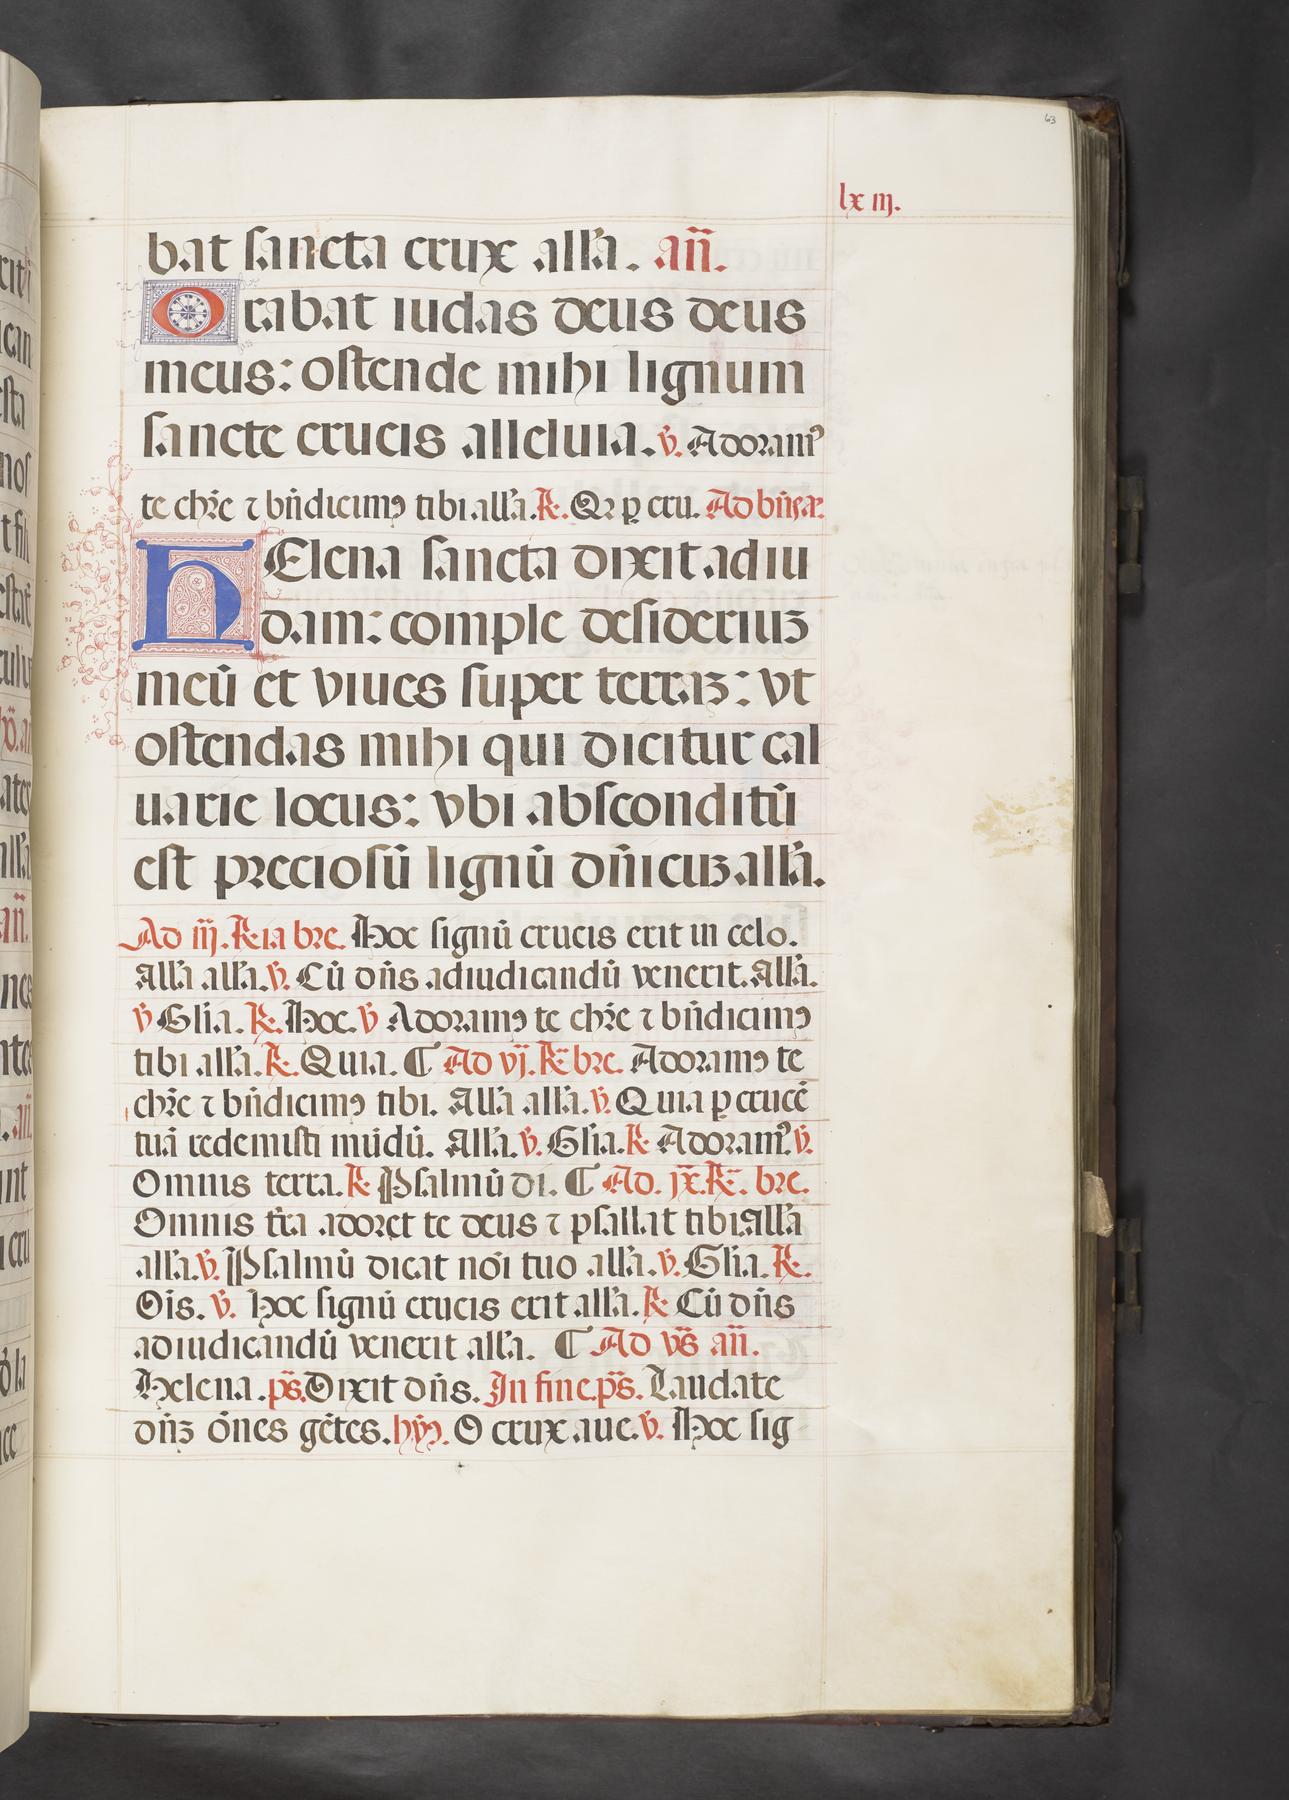 63
lx iij.
bat sancta crux all'a. añ.
Orabat iudas deus deus
meus: ostende mihi lignum
sancte crucis alleluia. v̄. Adoram⁹
te chr̄e ⁊ bn̄dicim⁹ tibi all'a. R̄. Qꝛ ꝑ cru. Ad bn̄s añ
hElena sancta dixit ad iu
dam: comple desideriuʒ
meū et viues super terraʒ: vt
ostendas mihi qui dicitur cal
uarie locus: vbi absconditū
est preciosū lignū dn̄icuʒ all'a.
Ad iij. R̄ia bre. Hoc signū crucis erit in celo.
All'a all'a. v̄. Cū dn̄s ad iudicandū venerit. All'a.
v̄ Gl'ia. R̄. Hoc. v̄ Adoram⁹ te chr̄e ⁊ bn̄dicim⁹
tibi all'a. R̄. Quia. ¶ Ad vj. R̄ bre. Adoram⁹ te
chr̄e ⁊ bn̄dicim⁹ tibi. All'a all'a. v̄. Quia ꝑ crucē
tuā redemisti mūdū. All'a. v̄. Gl'ia. R̄ Adoram⁹. v̄.
Omnis terra. R̄ Psalmū di. ¶ Ad. jx. R̄. bre.
Omnis t'ra adoret te deus ⁊ psallat tibi All'a
all'a. v̄. Psalmū dicat nōi tuo all'a. v̄. Gl'ia. R̄.
Oīs. v̄. Hoc signū crucis erit all'a. R̄ Cū dn̄s
ad iudicandū venerit all'a. ¶ Ad vs̄ añ.
Helena. ps̄. Dixit dn̄s. In fine. ps̄. Laudate
dn̄ʒ ōnes gētes. hy⁹. O crux aue. v̄. Hoc sig